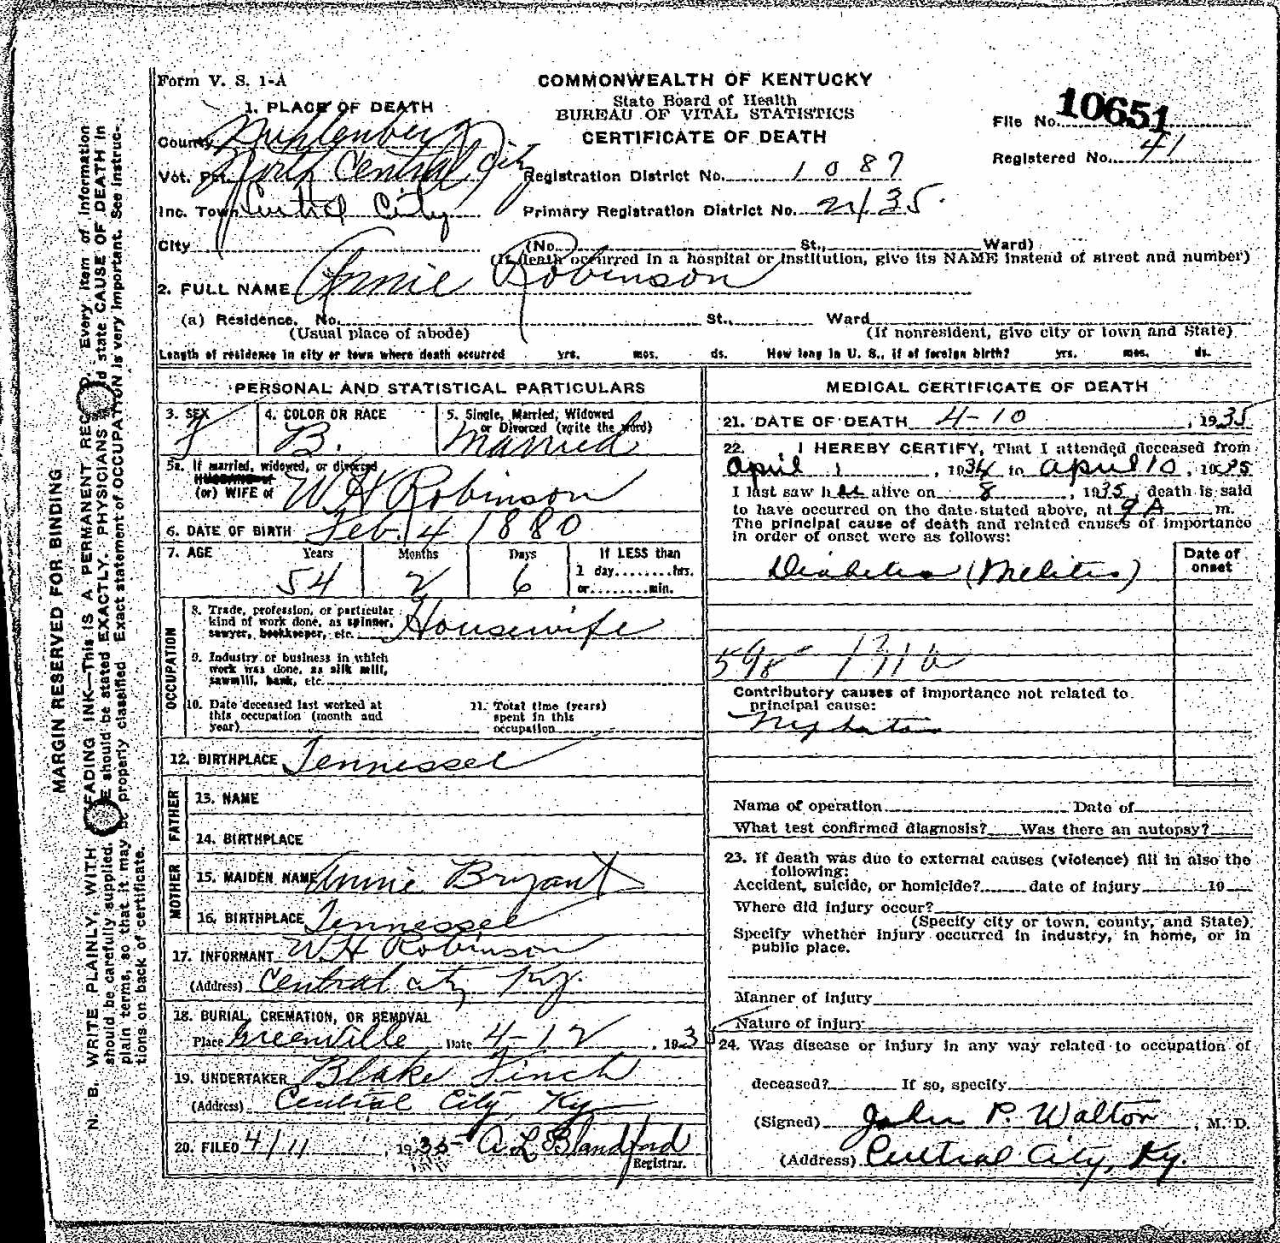 Form V. S. 1-A
COMMONWEALTH OF KENTUCKY
State Board of Health
BUREAU OF VITAL STATISTICS
CERTIFICATE OF DEATH
File No. 10651
Registered No. 41
1. PLACE OF DEATH
County Muhlenberg
Vot. Pct. North Central City
Registration District No. 1087
Inc. Town Central City
Primary Registration District No. 2435.
City (No. St., Ward)
(If death occurred in a hospital or institution, give its NAME instead of street and number)
2. FULL NAME Annie Robinson
(a) Residence, No. St., Ward
(Usual place of abode) (If nonresident, give city or town and State)
Length of residence in city or town where death occurred yrs. mos. ds. How long in U. S., if of foreign birth? yrs. mos. ds.
PERSONAL AND STATISTICAL PARTICULARS
3. SEX F
4. COLOR OR RACE B.
5. Single, Married, Widowed or Divorced (write the word) Married
5a. If married, widowed, or divorced
HUSBAND of
(or) WIFE of W H Robinson
6. DATE OF BIRTH Feb. 4 1880
7. AGE Years 54 Months 2 Days 6 If LESS than
1 day........hrs.
or........min.
OCCUPATION
8. Trade, profession, or particular
kind of work done, as spinner,
sawyer, bookkeeper, etc. Housewife
9. Industry or business in which
work was done, as silk mill,
sawmill, bank, etc.
10. Date deceased last worked at
this occupation (month and
year)
11. Total time (years)
spent in this
occupation
12. BIRTHPLACE Tennessee
FATHER
13. NAME
14. BIRTHPLACE
MOTHER
15. MAIDEN NAME Annie Bryant
16. BIRTHPLACE Tennessee
17. INFORMANT W H Robinson
(Address) Central City Ky.
18. BURIAL, CREMATION, OR REMOVAL
Place Greenville Date 4-12, 193
19. UNDERTAKER Blake Finch
(Address) Central City, Ky
20. FILED 4/11, 1935 A L Blandford
Registrar.
MEDICAL CERTIFICATE OF DEATH
21. DATE OF DEATH 4-10, 1935
22. I HEREBY CERTIFY, That I attended deceased from
April 1, 1934 to April 10, 1935
I last saw her alive on 8, 1935, death is said
to have occurred on the date stated above, at 9 A m.
The principal cause of death and related causes of importance
in order of onset were as follows:
Date of
onset
Diabetis (Melitis)
Contributory causes of importance not related to
principal cause:
Name of operation Date of
What test confirmed diagnosis? Was there an autopsy?
23. If death was due to external causes (violence) fill in also the
following:
Accident, suicide, or homicide? date of injury 19
Where did injury occur?
(Specify city or town, county, and State)
Specify whether injury occurred in industry, in home, or in
public place.
Manner of injury
Nature of injury
24. Was disease or injury in any way related to occupation of
deceased? If so, specify
(Signed) John P. Walton, M. D.
(Address) Central City, Ky.
MARGIN RESERVED FOR BINDING
N. B. WRITE PLAINLY, WITH FADING INK—THIS IS A PERMANENT REC D. Every item of information
should be carefully supplied. E should be stated EXACTLY. PHYSICIANS d state CAUSE OF DEATH in
plain terms, so that it may be properly classified. Exact statement of OCCUPATION is very important. See instruc-
tions on back of certificate.